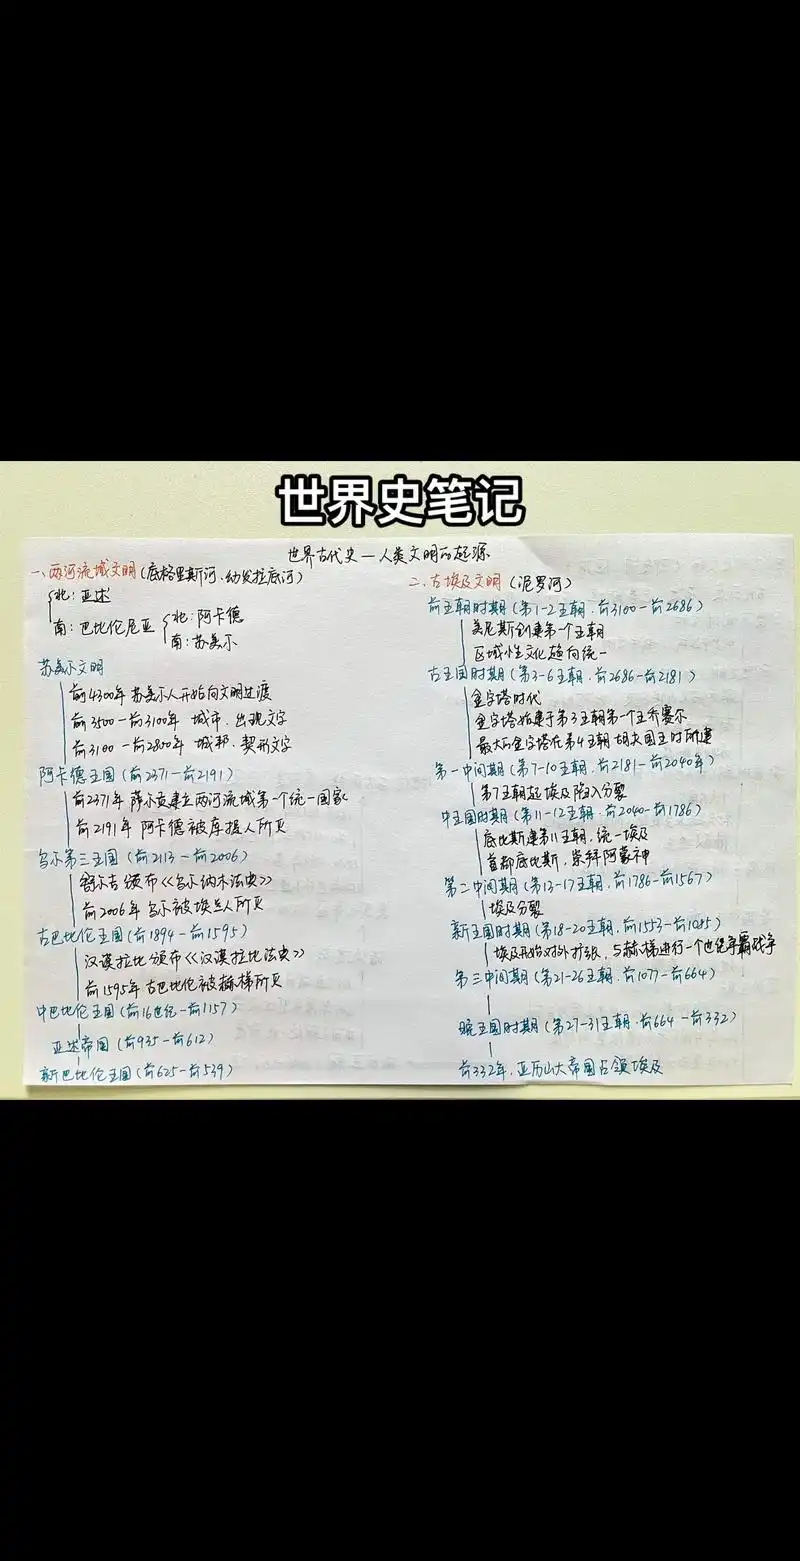 世界史笔记
世界古代史—人类文明的起源
一、两河流域文明(底格里斯河、幼发拉底河)
北:亚述
南:巴比伦尼亚
北:阿卡德
南:苏美尔
苏美尔文明
前4300年 苏美尔人开始向文明过渡
前3500-前3100年 城市、出现文字
前3100-前2800年 城邦、楔形文字
阿卡德王国(前2371-前2191)
前2371年 萨尔贡建立两河流域第一个统一国家
前2191年 阿卡德被库提人所灭
乌尔第三王国(前2113-前2006)
舒尔吉 颁布《乌尔纳木法典》
前2006年 乌尔被埃兰人所灭
古巴比伦王国(前1894-前1595)
汉谟拉比颁布《汉谟拉比法典》
前1595年 古巴比伦被赫梯所灭
中巴比伦王国(前16世纪-前1157)
亚述帝国(前935-前612)
新巴比伦王国(前625-前539)
二、古埃及文明(泥罗河)
前王朝时期(第1-2王朝、前3100-前2686)
美尼斯创建第一个王朝
区域性文化趋向统一
古王国时期(第3-6王朝、前2686-前2181)
金字塔时代
金字塔始建于第3王朝第一个王乔赛尔
最大的金字塔在第4王朝胡夫国王时所建
第一中间期(第7-10王朝、前2181-前2040年)
第7王朝起埃及陷入分裂
中王国时期(第11-12王朝、前2040-前1786)
底比斯建第11王朝,统一埃及
首都底比斯,崇拜阿蒙神
第二中间期(第13-17王朝、前1786-前1567)
埃及分裂
新王国时期(第18-20王朝、前1553-前1085)
埃及开始对外扩张,与赫梯进行一个世纪争霸战争
第三中间期(第21-26王朝、前1077-前664)
晚王国时期(第27-31王朝、前664-前332)
前332年,亚历山大帝国占领埃及